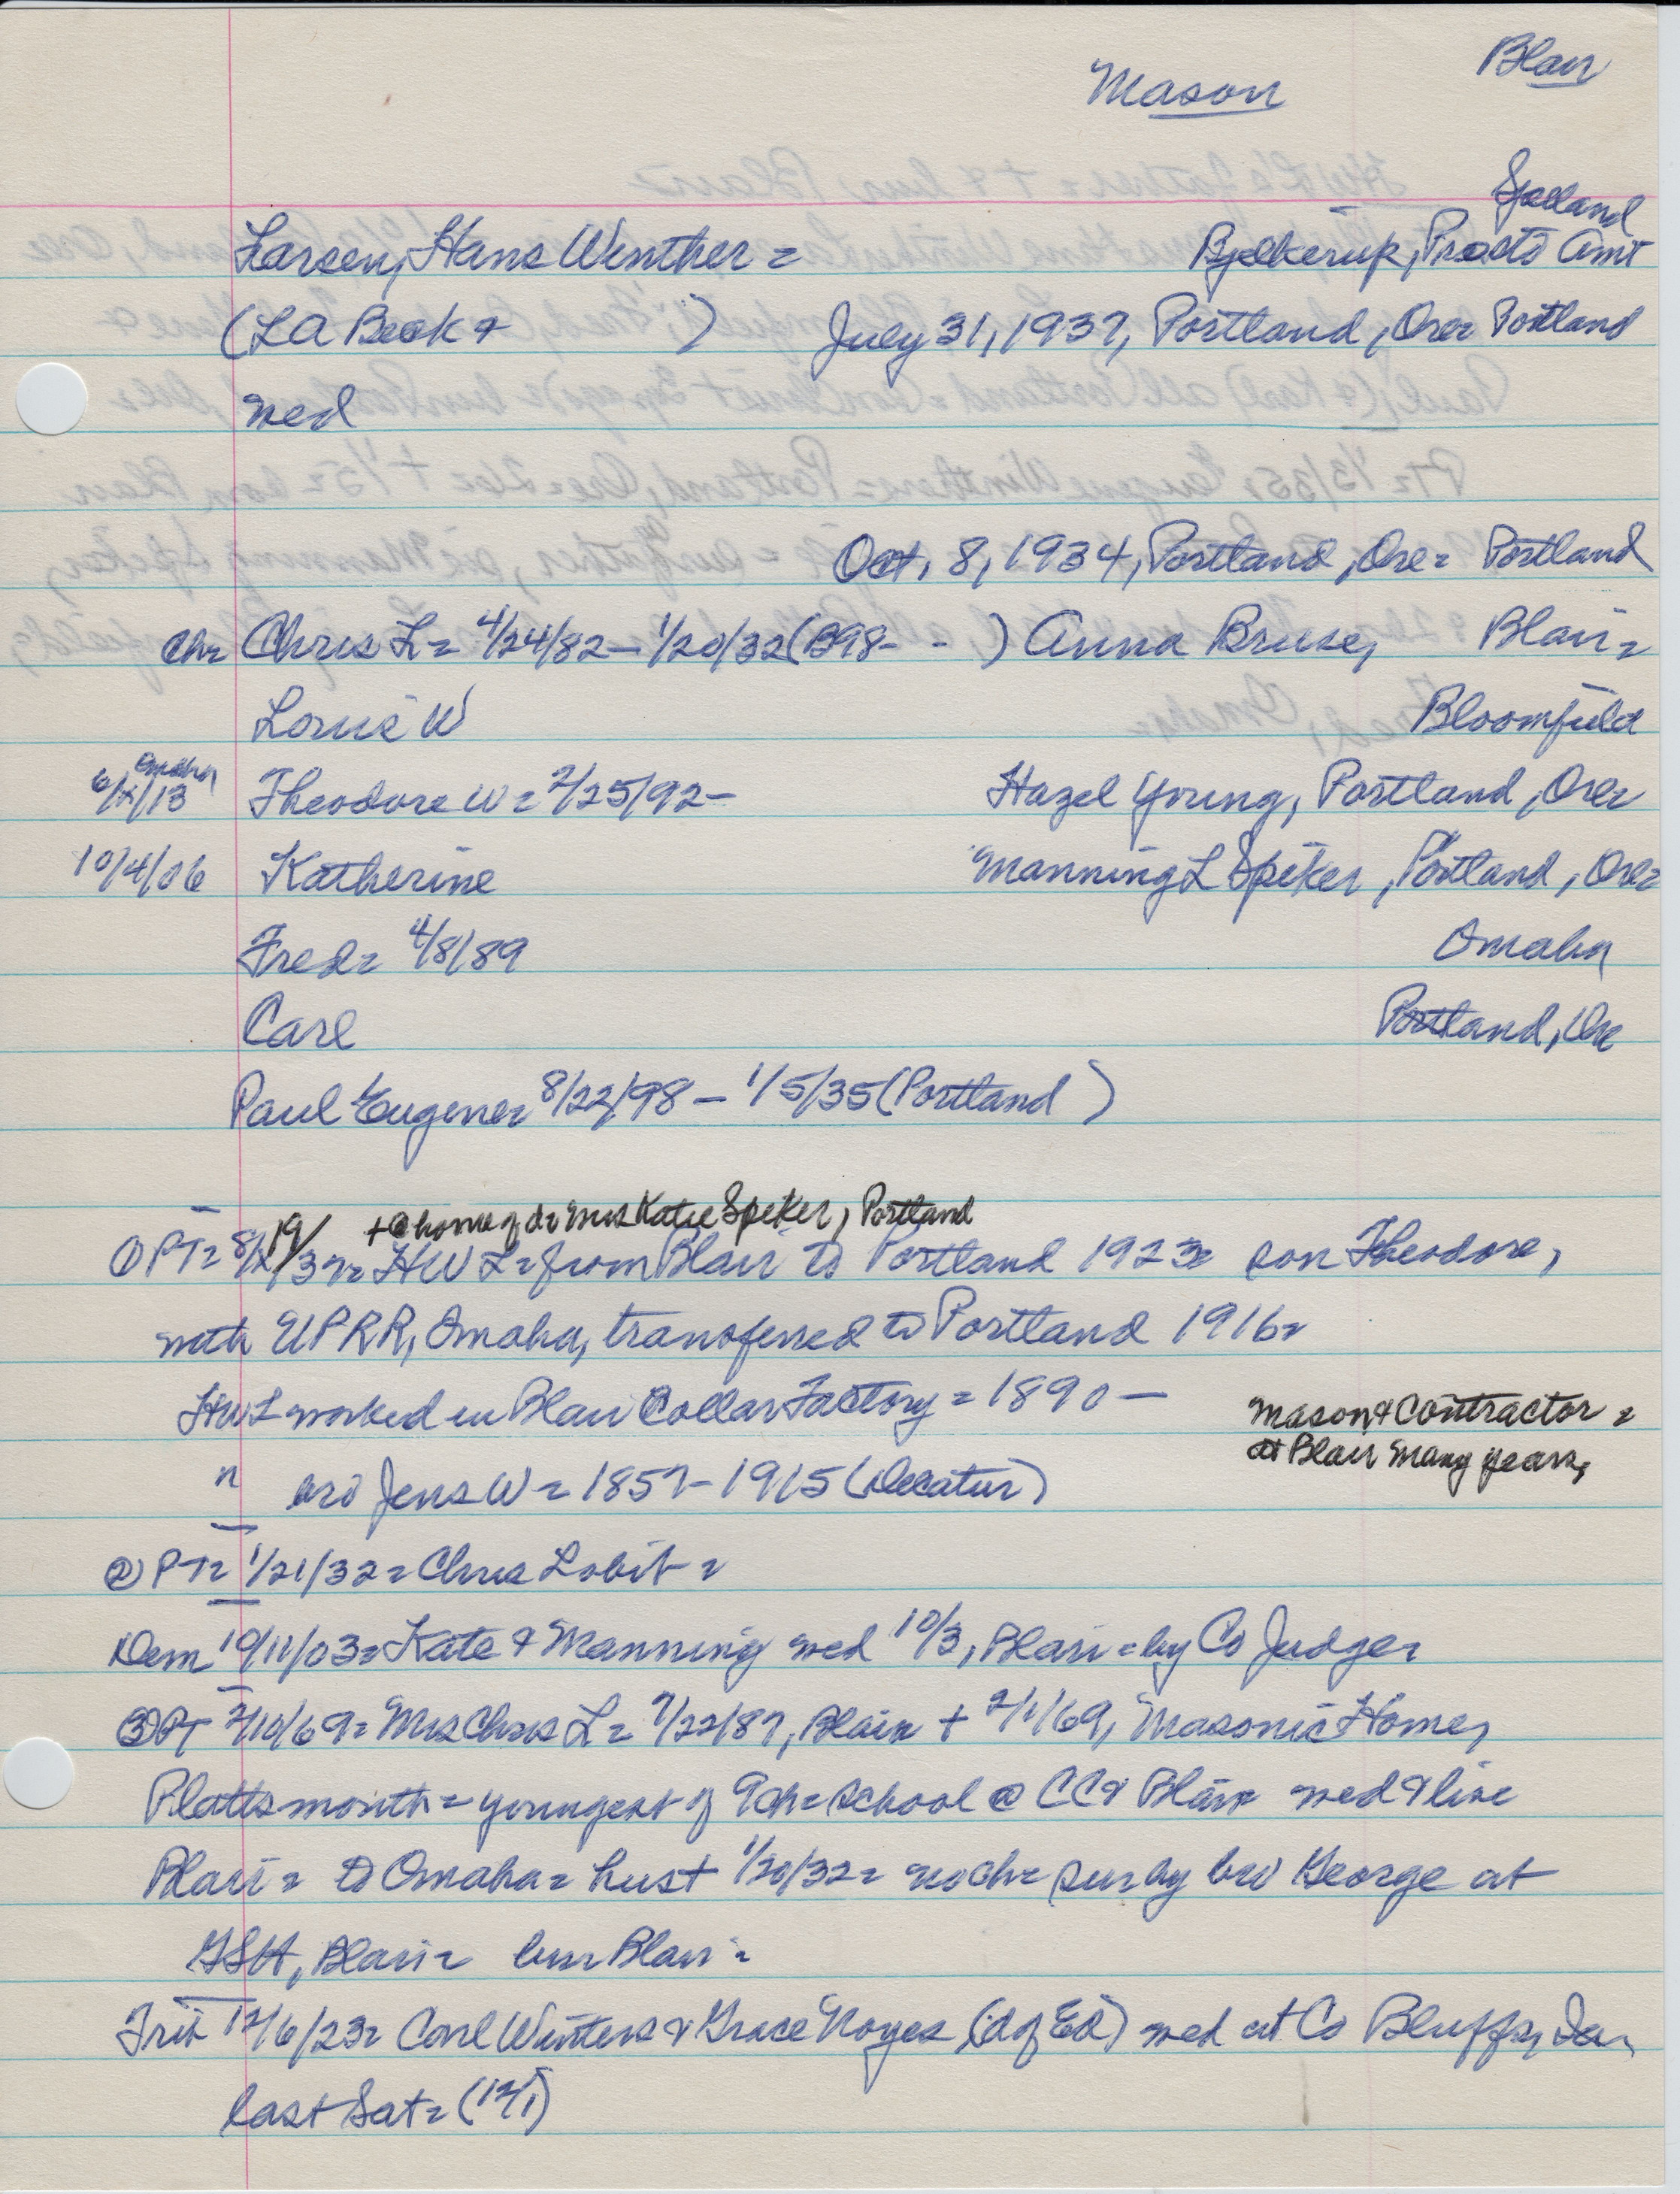 Blair
Mason
Sjælland
Larsen, Hans Winther = Bjelkerup, Præstø Amt
(LA Beck & ) July 31, 1937, Portland, Ore= Portland
med
Oct, 8, 1934, Portland, Ore= Portland
Ch= Chris L= 4/24/82 – 1/20/32 (B98- - ) Anna Bruse, Blair=
Louis W Bloomfield
Omaha
6/ /13 Theodore W= 2/25/92 – Hazel Young, Portland, Ore=
10/4/06 Katherine Manning L Spiker, Portland, Ore=
Fred= 4/8/89 Omaha
Carl Portland, Ore
Paul Eugene= 8/22/98 – 1/5/35 (Portland )
+ @ home of da Mrs Katie Speker, Portland
① PT= 8/19/37= HW L= from Blair to Portland 1923= son Theodore,
with UPRR, Omaha, transferred to Portland 1916=
HWL worked in Blair Collar Factory = 1890 –
Mason & Contractor =
at Blair many years,
" bro Jens W = 1857 – 1915 (Decatur)
② PT= 1/21/32= Chris L obit=
Dem 10/11/03= Kate & Manning med 10/3, Blair = by Co Judge=
③ PT 2/10/69= Mrs Chris L= 7/22/87, Blair + 2/1/69, Masonic Home,
Plattsmouth = youngest of 9 ch= school @ CC& Blair med & live
Blair = to Omaha= hus + 1/20/32= no ch= sur by bro George at
GSH, Blair= bur Blair =
Trib 12/6/23= Carl Winters & Grace Noyes (d of Ed) med at Co Bluffs, Ia,
last Sat= (12/1)